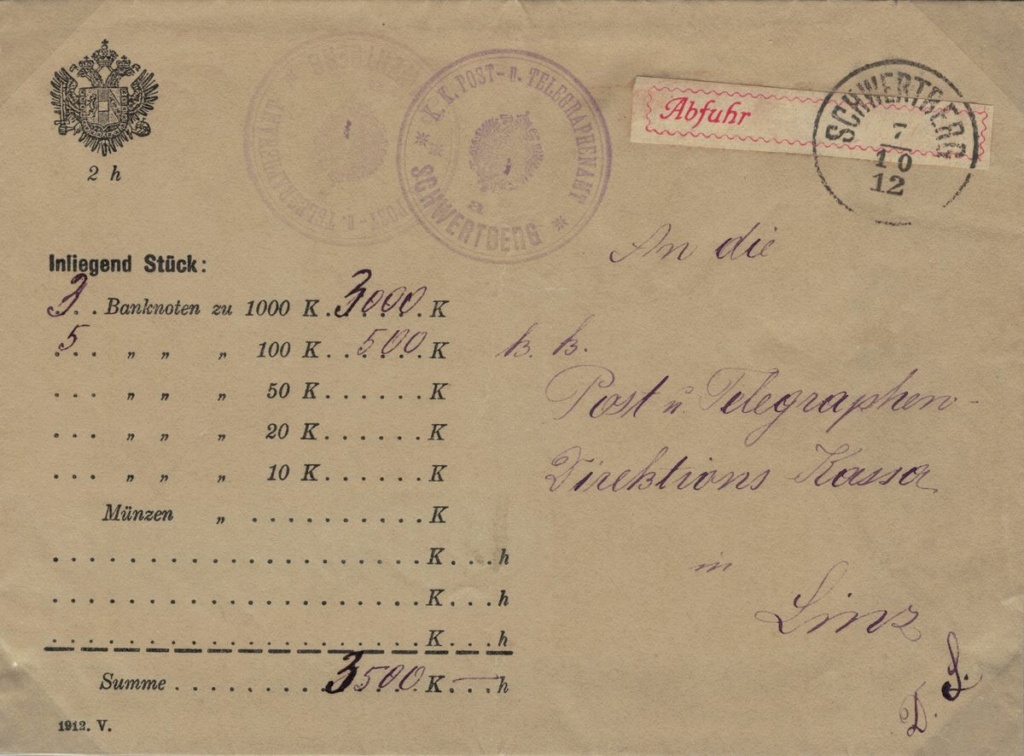 2 h
K. K. POST- u. TELEGRAPHENAMT
SCHWERTBERG
Abfuhr
SCHWERTBERG
7
10
12
Inliegend Stück:
3. . Banknoten zu 1000 K. 3000. K
5. . . „ „ „ 100 K. . . 500. K
. . . „ „ „ 50 K. . . . . . K
. . . „ „ „ 20 K. . . . . . K
. . . „ „ „ 10 K. . . . . . K
Münzen „ . . . . . . . . . . K
. . . . . . . . . . . . . . . . . . K. . . h
. . . . . . . . . . . . . . . . . . K. . . h
. . . . . . . . . . . . . . . . . . K. . . h
Summe . . . . . . . . 3500. K — h
1912. V.
An die
k. k.
Post u Telegraphen-
Direktions Kassa
in
Linz
D. S.